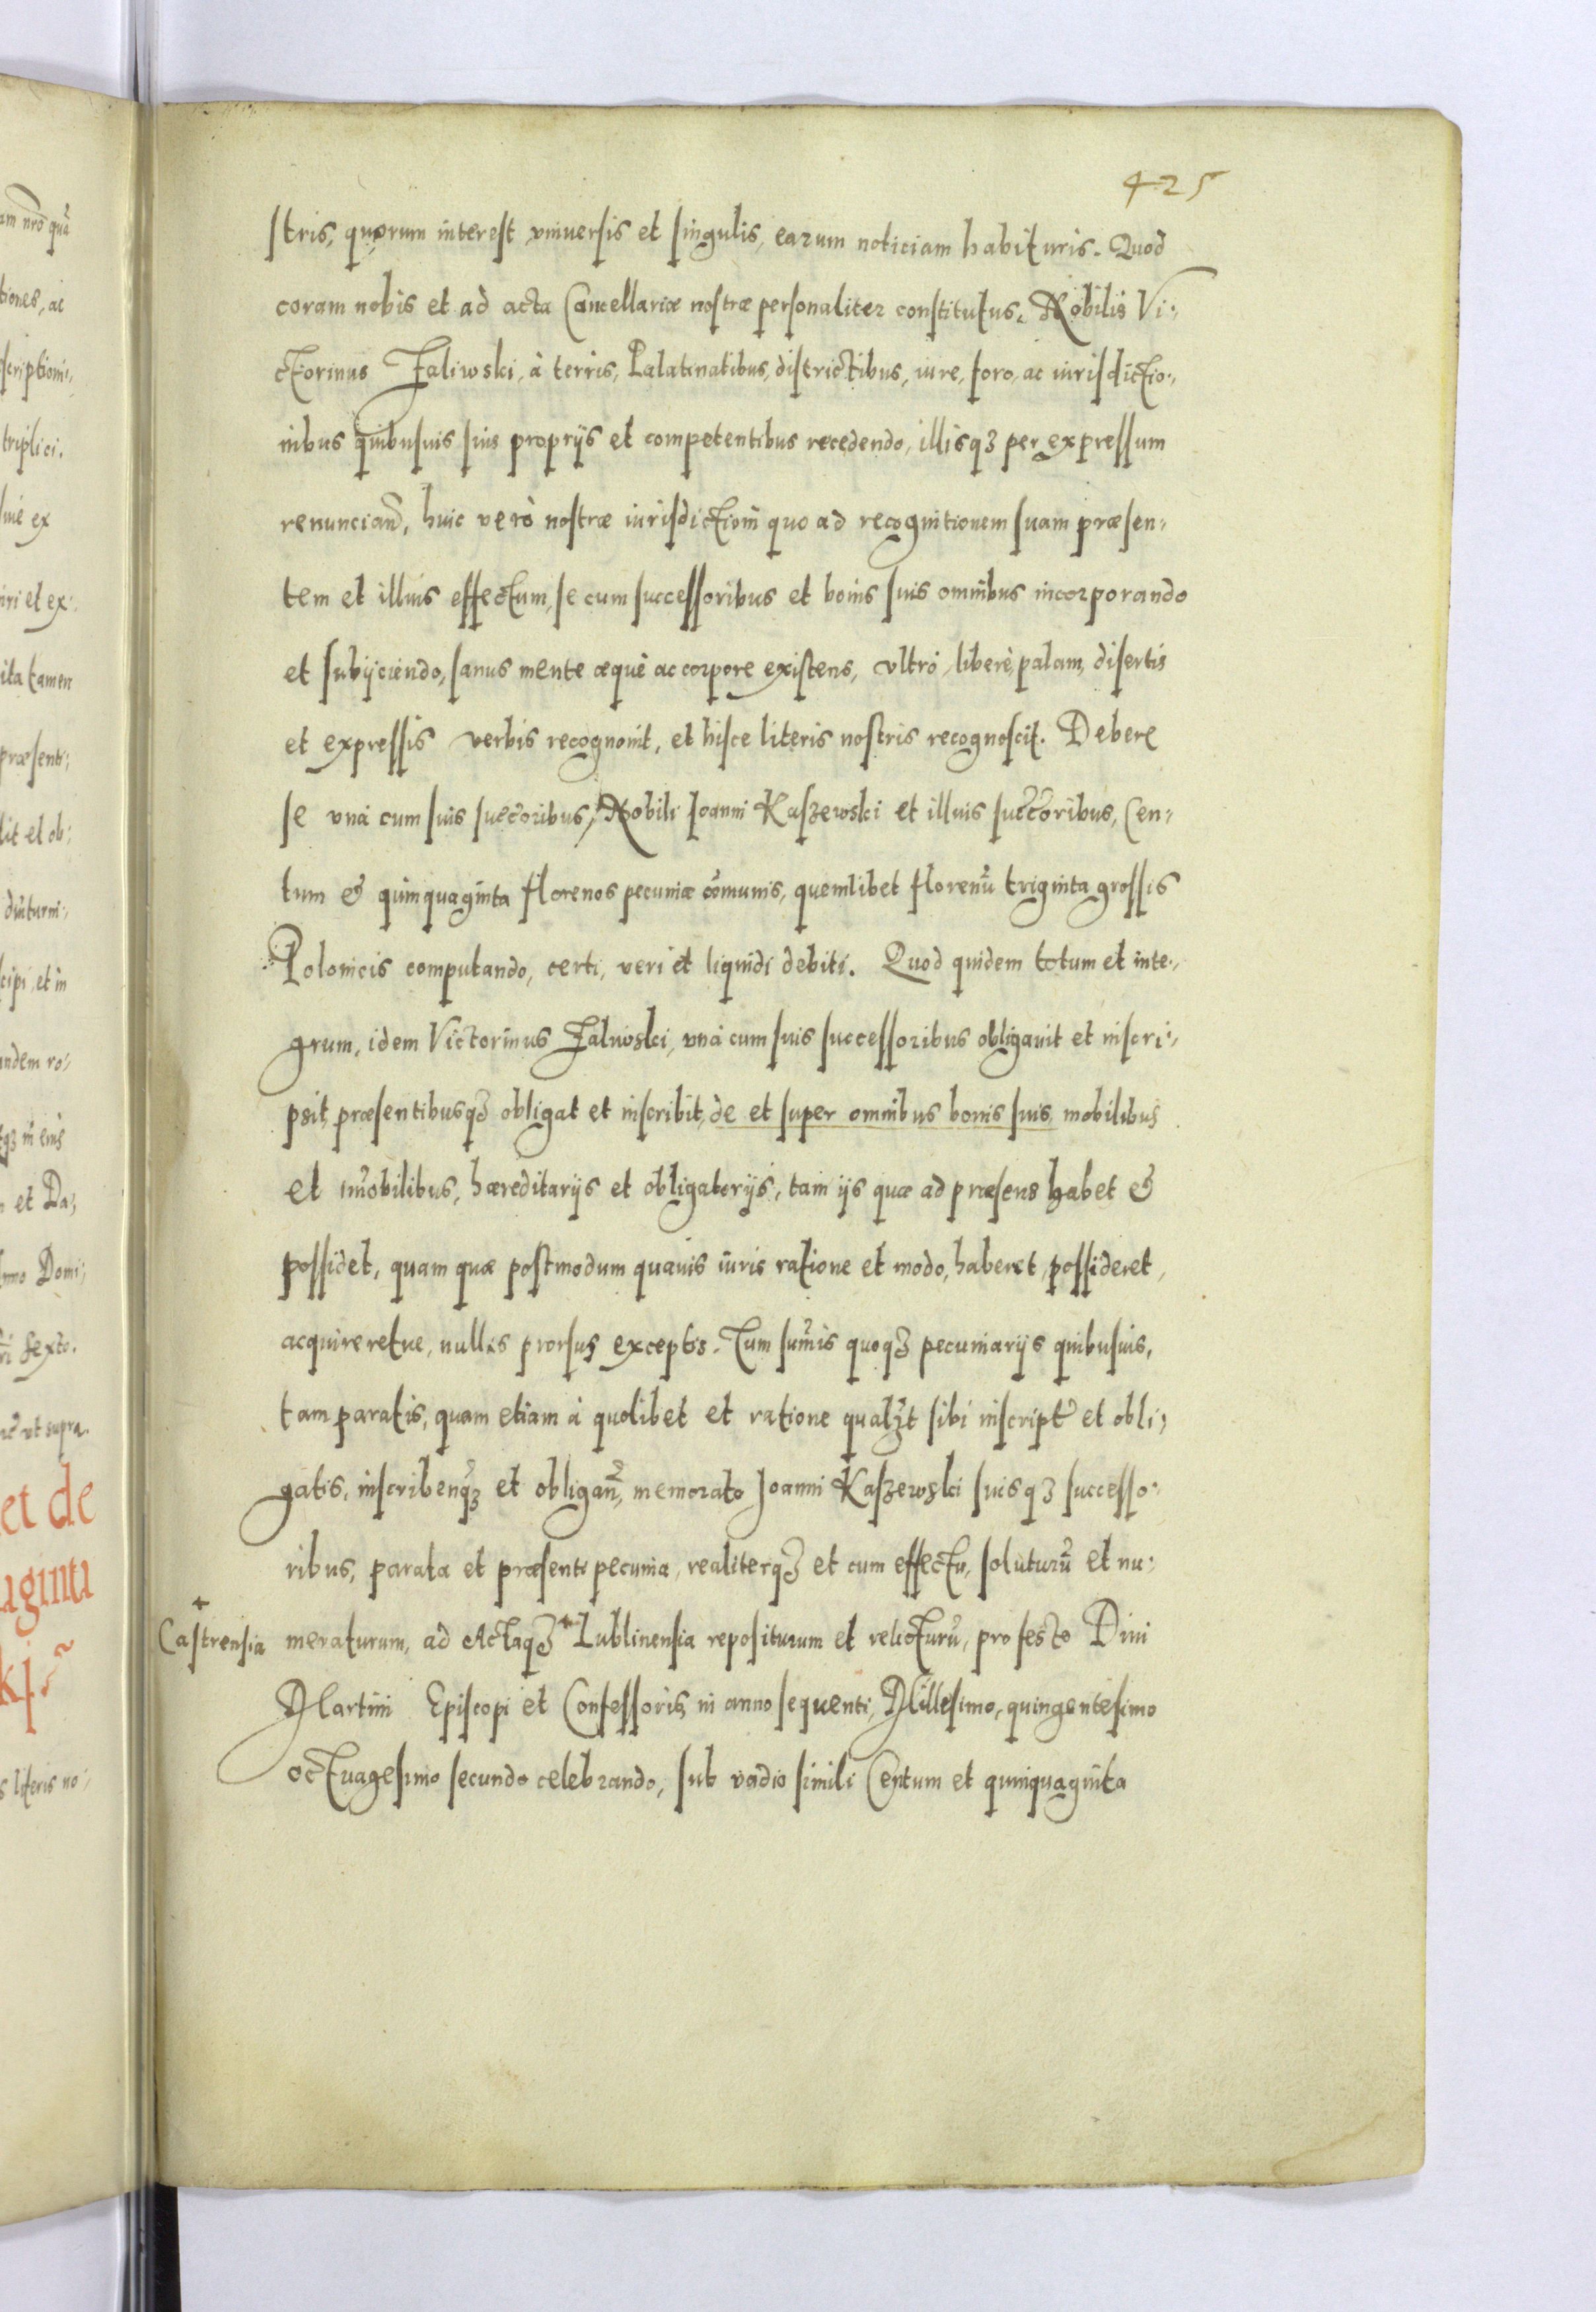 425
stris, quorum interest vniuersis et singulis, earum noticiam habituris. Quod
coram nobis et ad acta Cancellariæ nostræ personaliter constitutus, Nobilis Vi-
ctorinus Zaliwski, à terris, Palatinatibus, districtibus, iure, foro, ac iurisdictio-
nibus quibusuis suis proprijs et competentibus recedendo, illisqȝ per expressum
renunciañ, huic verò nostræ iurisdictioñi quo ad recognitionem suam præsen-
tem et illius effectum, se cum successoribus et bonis suis omnibus incorporando
et subijciendo, sanus mente æquè ac corpore existens, vltrò, liberè, palam, disertis
et expressis verbis recognouit, et hisce literis nostris recognoscit. Debere
se vnà cum suis succõribus, Nobili Joanni Kaszewski et illius succõribus, Cen-
tum & quinquaginta florenos pecuniæ cõmunis, quemlibet florenũ triginta grossis
Polonicis computando, certi, veri et liquidi debiti. Quod quidem totum et inte-
grum, idem Victorinus Zaliwski, vnà cum suis successoribus obligauit et inscri-
psit, præsentibusqȝ obligat et inscribit, de et super omnibus bonis suis, mobilibus
et im̃obilibus, hæreditarijs et obligatorijs, tam ijs quæ ad præsens habet &
possidet, quam quæ postmodum quauis iuris ratione et modo, haberet, possideret,
acquireretue, nullis prorsus exceptis. Tum sum̃is quoqȝ pecuniarijs quibusuis,
tam paratis, quam etiam à quolibet et ratione qualȝt sibi inscript̃ et obli-
gatis, inscribenqȝ et obligañ, memorato Joanni Kaszewski suisqȝ successo-
ribus, parata et præsenti pecunia, realiterqȝ et cum effectu, soluturũ et nu-
Castrensia meraturum, ad Actaqȝ + Lublinensia repositurum et relicturũ, pro festo Diui
Martini Episcopi et Confessoris, in anno sequenti, Millesimo, quingentesimo
octuagesimo secundo celebrando, sub vadio simili Centum et quinquaginta